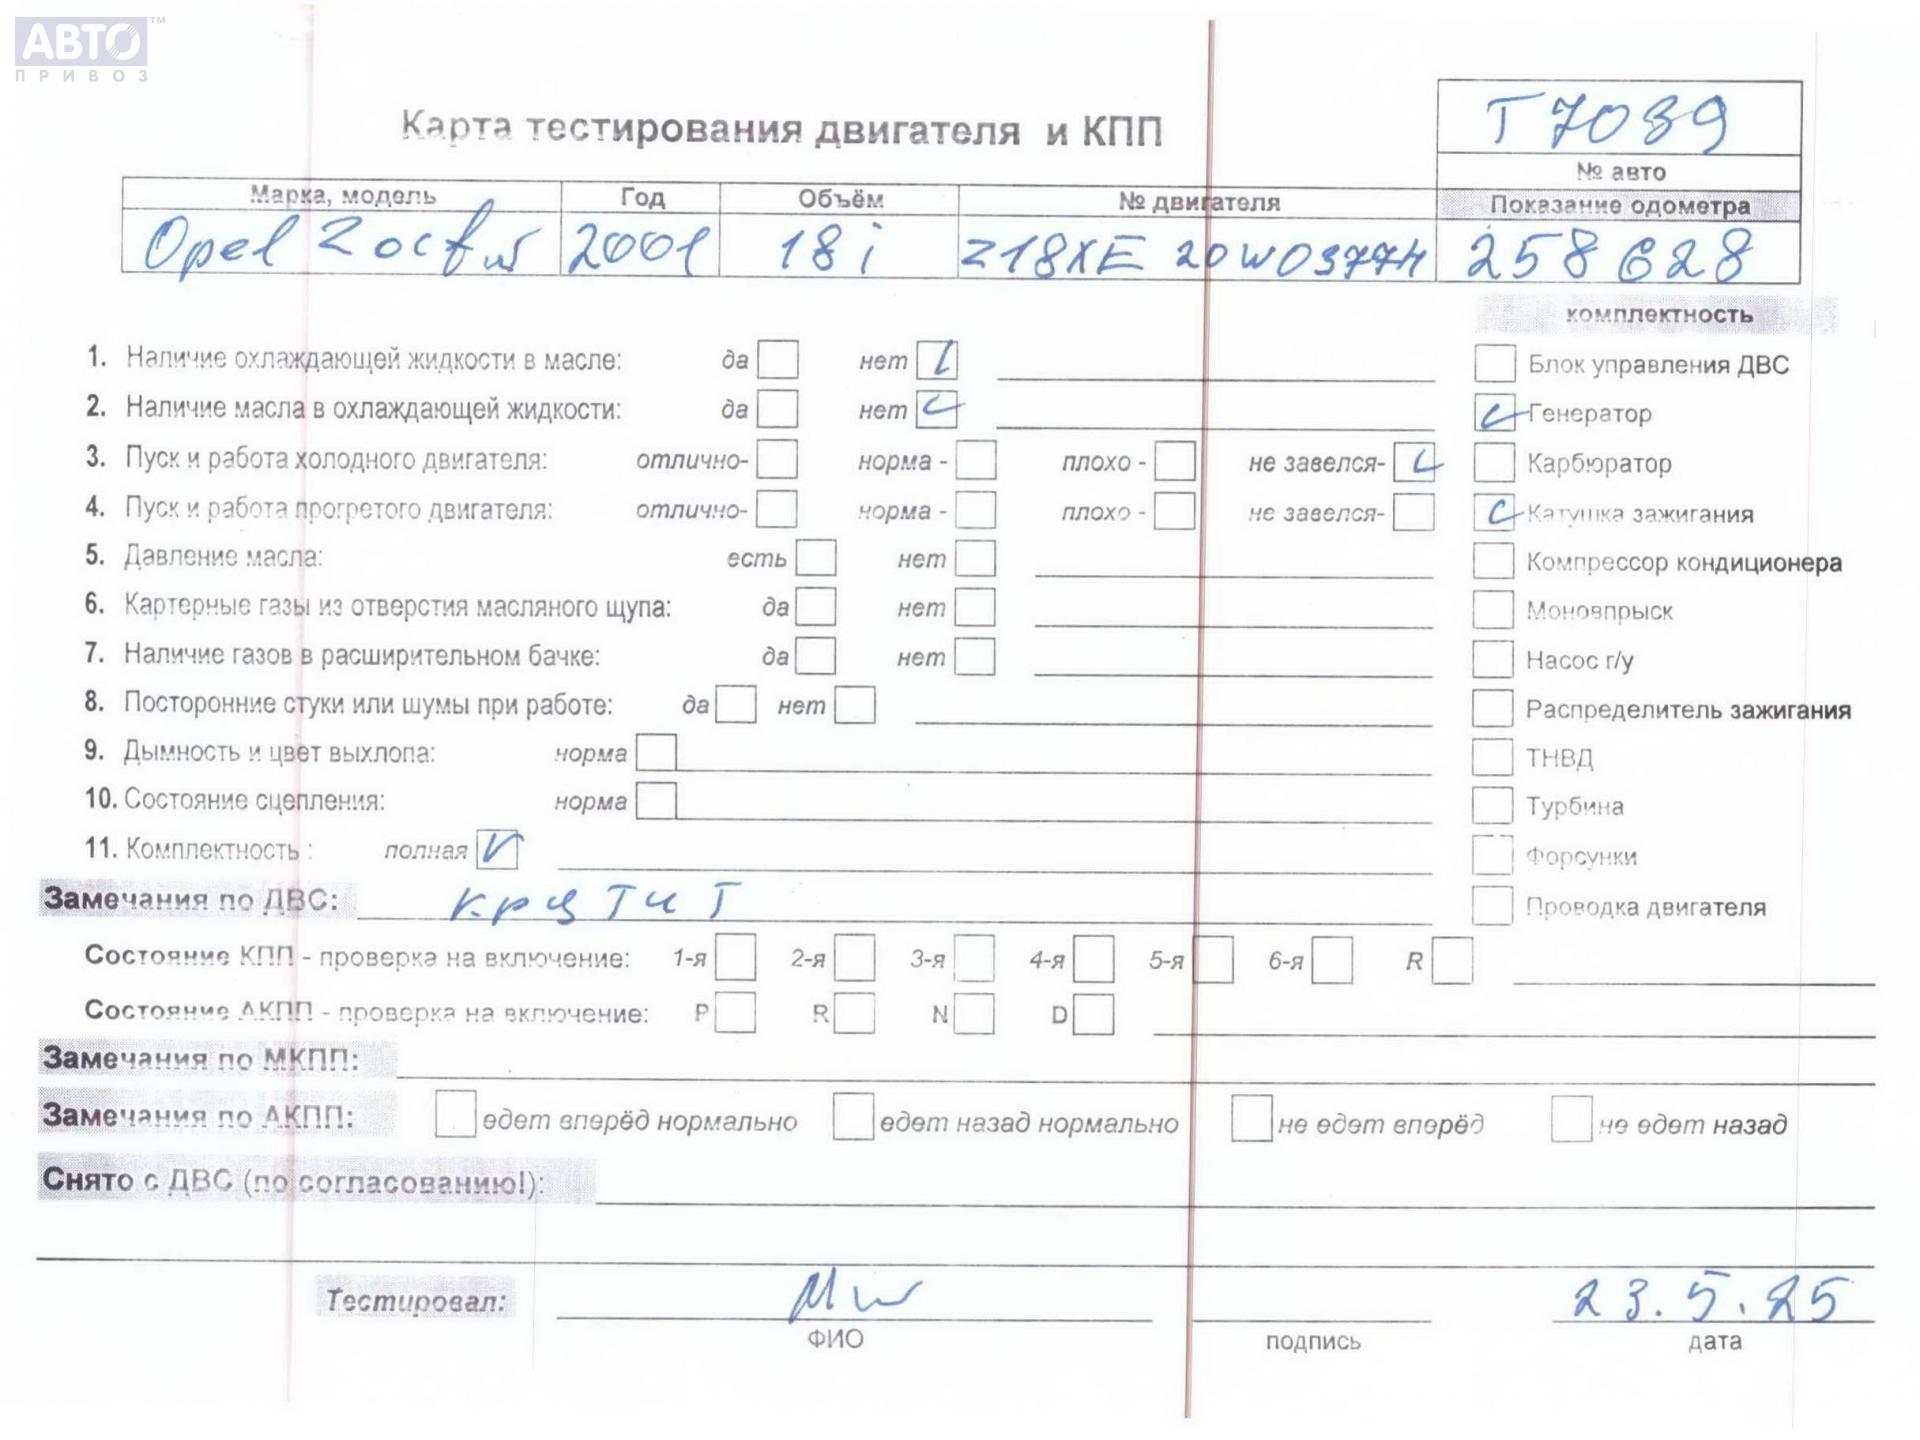 АВТО™
ПРИВОЗ
Карта тестирования двигателя и КПП
Т7039
№ авто
Марка, модель Год Объём № двигателя Показание одометра
Opel 2001 18i Z18XE 258628
комплектность
1. Наличие охлаждающей жидкости в масле: да нет Блок управления ДВС
2. Наличие масла в охлаждающей жидкости: да нет Генератор
3. Пуск и работа холодного двигателя: отлично- норма - плохо - не завелся- Карбюратор
4. Пуск и работа прогретого двигателя: отлично- норма - плохо - не завелся- Катушка зажигания
5. Давление масла: есть нет Компрессор кондиционера
6. Картерные газы из отверстия масляного щупа: да нет Моновпрыск
7. Наличие газов в расширительном бачке: да нет Насос г/у
8. Посторонние стуки или шумы при работе: да нет Распределитель зажигания
9. Дымность и цвет выхлопа: норма ТНВД
10. Состояние сцепления: норма Турбина
11. Комплектность : полная V Форсунки
Замечания по ДВС: крутит Проводка двигателя
Состояние КПП - проверка на включение: 1-я 2-я 3-я 4-я 5-я 6-я R
Состояние АКПП - проверка на включение: P R N D
Замечания по МКПП:
Замечания по АКПП: едет вперёд нормально едет назад нормально не едет вперёд не едет назад
Снято с ДВС (по согласованию!):
Тестировал: 23.5.25
ФИО подпись дата